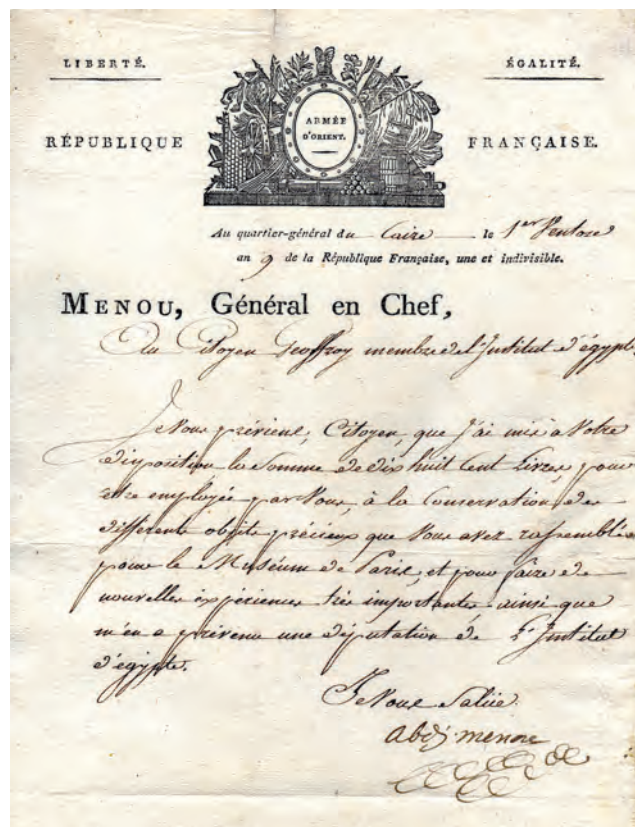 LIBERTÉ.
ÉGALITÉ.
ARMÉE
D'ORIENT.
RÉPUBLIQUE
FRANÇAISE.
Au quartier-général du Caire le 1er Ventose
an 9 de la République Française, une et indivisible.
MENOU, Général en Chef,
Au Citoyen Geoffroy membre de l'Institut d'égypte
Je Vous préviens, Citoyen, que j'ai mis à Votre
disposition la Somme de dix huit Cent Livres, pour
être employée par Vous, à la Conservation des
différents objets précieux que Vous avez rassemblés
pour le Muséum de Paris, et pour faire de
nouvelles expériences très importantes ainsi que
m'en a prévenu une députation de l'Institut
d'égypte.
Je Vous Salüe.
abdj. menou